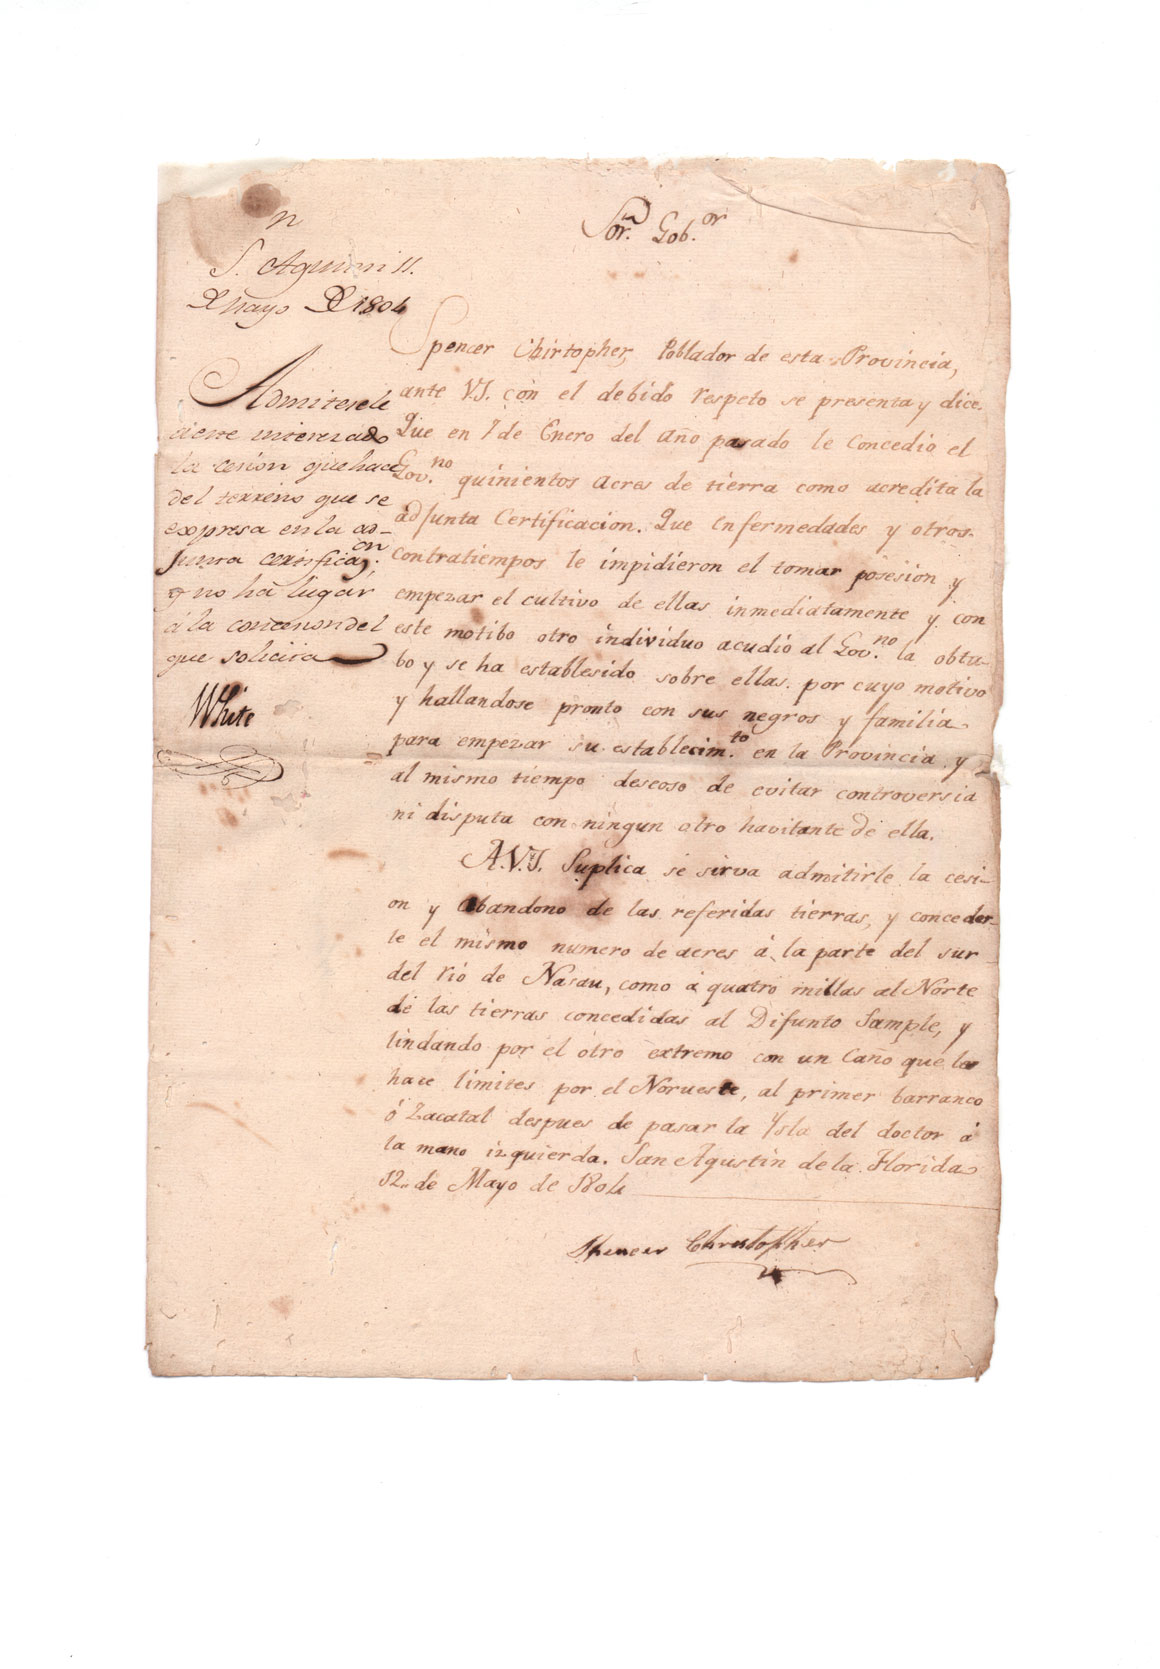 Sor. Gob.or
n
S. Agustin 12.
de Mayo de 1804
Admitesele
á este interezado
la cesion que hace
del terreno que se
expresa en la ad-
junta certificacion;
y no há lugar
á la concesion del
que solicita
White
Spencer Chirtopher, Poblador de esta Provincia,
ante V.S. con el debido respeto se presenta y dice.
Que en 7 de Enero del año pasado le Concedio el
Gov.no quinientos acres de tierra como acredita la
adjunta Certificacion. Que enfermedades y otros
contratiempos le impidieron el tomar posesion y
empezar el cultivo de ellas inmediatamente y con
este motibo otro individuo acudió al Gov.no la obtu-
bo y se ha establesido sobre ellas. por cuyo motivo
y hallandose pronto con sus negros y familia
para empezar su establecim.to en la Provincia y
al mismo tiempo deseoso de evitar controversia
ni disputa con ningun otro havitante de ella.
A.V.S. Suplica se sirva admitirle la cesi-
on y abandono de las referidas tierras, y conceder-
le el mismo numero de acres á la parte del sur
del rió de Nasau, como á quatro millas al Norte
de las tierras concedidas al Difunto Sample, y
lindando por el otro extremo con un Caño que las
hace limites por el Norueste, al primer barranco
ó Zacatal despues de pasar la Ysla del doctor á
la mano izquierda. San Agustin de la Florida
12 de Mayo de 1804
Spencer Christopher